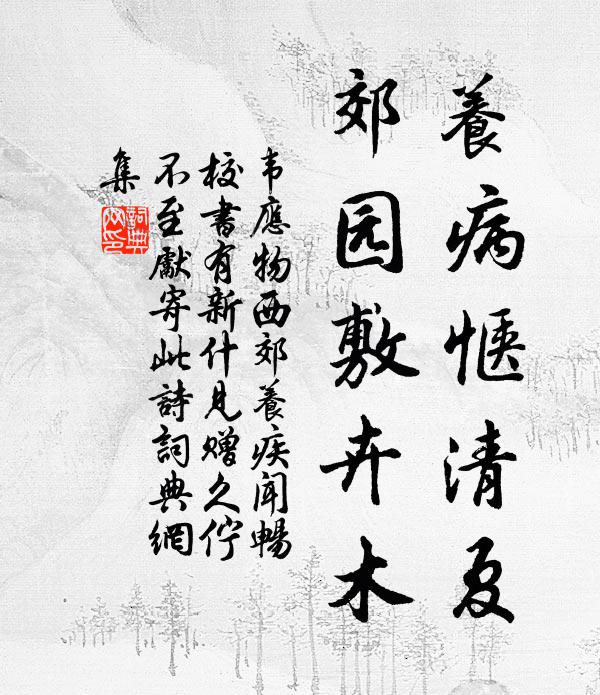 養病愜清夏
郊园敷卉木
韦應物西郊養疾聞暢
校書有新什見赠久佇
不至獻寄此詩詞典網
集
詞典網印